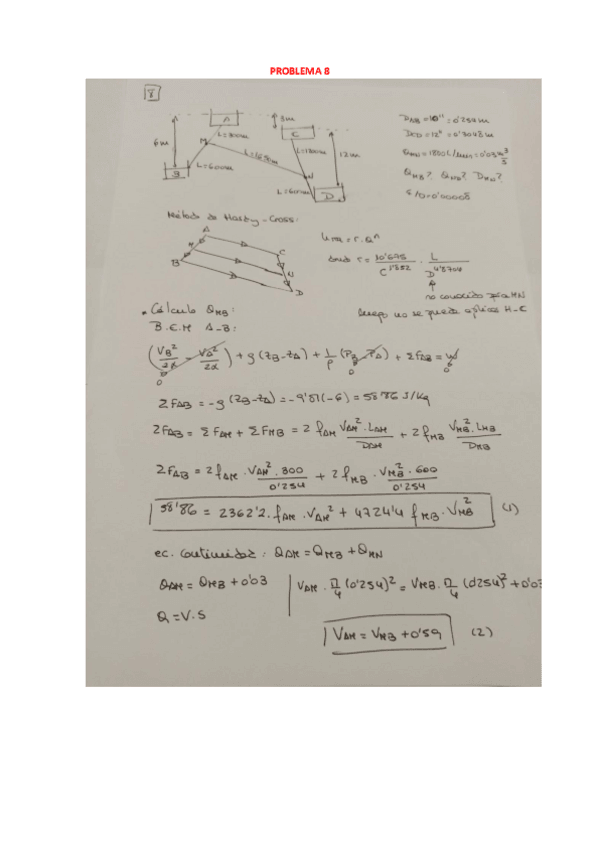 PROBLEMA 8
8
A
3m
6m
L=300m
M
C
L=1200m
12m
L=600m
B
N
D
D_AB = 10" = 0'254m
D_CD = 12" = 0'3048m
Q_MN = 1800 L/min = 0'03 m³/s
Q_MB? Q_ND? D_MN?
Método de Hardy-Cross:
A
M
B
C
N
D
h_m = r·Q^n
donde r = 10'675 / C^1'852 · L / D^4'8704
no conocido para MN
luego no se puede aplicar H-C
• Cálculo Q_MB:
B.E.M A-B:
(V_B²/2α - V_A²/2α) + g(Z_B-Z_A) + 1/ρ (P_B - P_A) + ΣF_AB = W
0 0 0
ΣF_AB = -g(Z_B-Z_A) = -9'81(-6) = 58'86 J/Kg
ΣF_AB = ΣF_AM + ΣF_MB = 2 f_AM V_AM²·L_AM / D_AM + 2 f_MB V_MB²·L_MB / D_MB
ΣF_AB = 2 f_AM · V_AM²·300 / 0'254 + 2 f_MB · V_MB²·600 / 0'254
58'86 = 2362'2·f_AM·V_AM² + 4724'4 f_MB·V_MB² (1)
ec. continuidad: Q_AM = Q_MB + Q_MN
Q_AM = Q_MB + 0'03 | V_AM · π/4 (0'254)² = V_MB · π/4 (0'254)² + 0'03
Q = V·S
V_AM = V_MB + 0'59 (2)